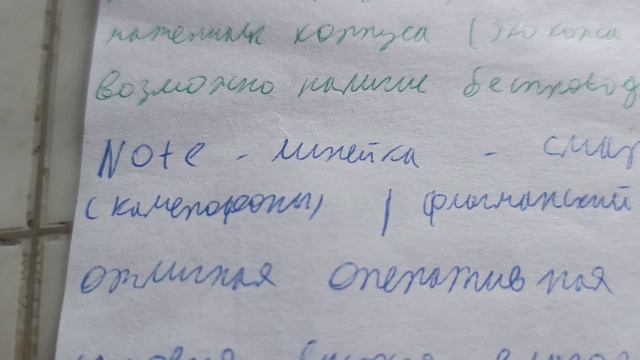 корпуса (эко кожа
возможно наличие беспровод
Note - линейка - смар
(камерофоны) / флагманский
отличная оперативная